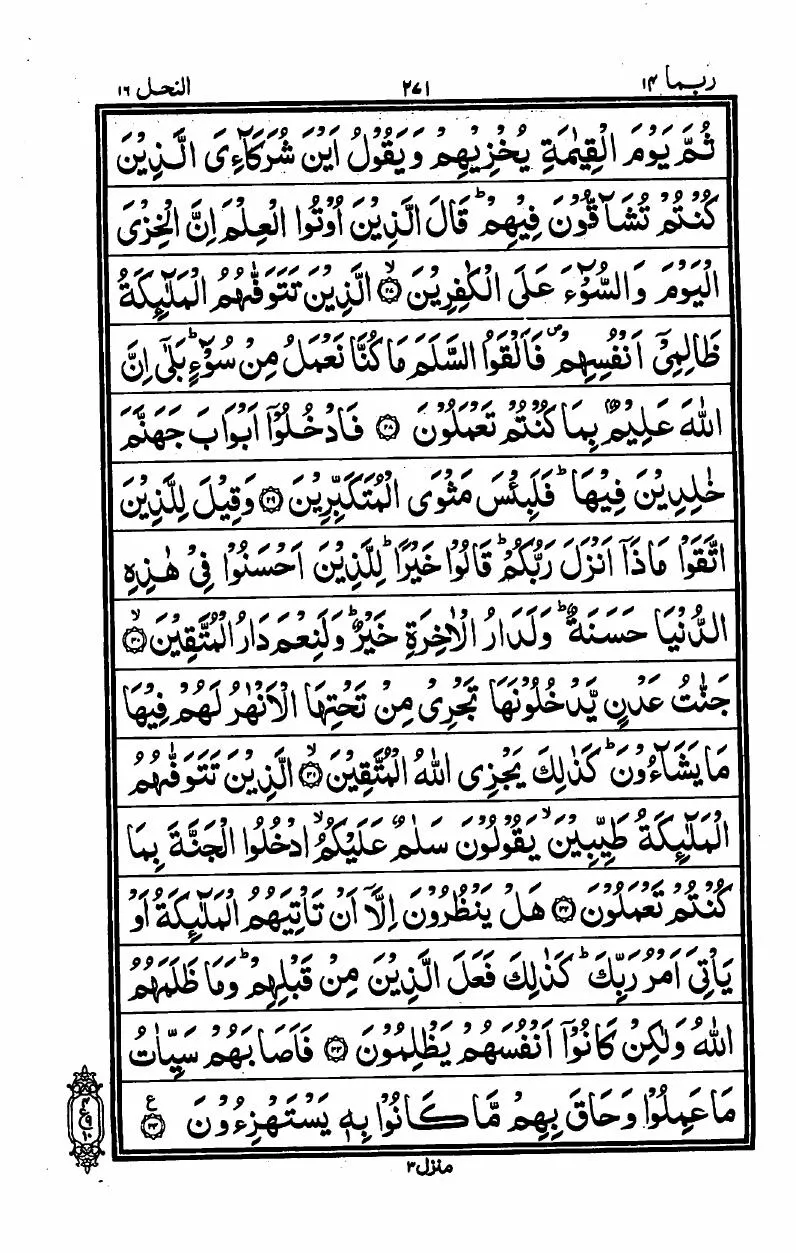 ربما ١٤ ٢٧١ النحل ١٦
ثُمَّ يَوْمَ الْقِيٰمَةِ يُخْزِيْهِمْ وَيَقُوْلُ اَيْنَ شُرَكَآءِيَ الَّذِيْنَ
كُنْتُمْ تُشَآقُّوْنَ فِيْهِمْ ؕ قَالَ الَّذِيْنَ اُوْتُوا الْعِلْمَ اِنَّ الْخِزْيَ
الْيَوْمَ وَالسُّوْٓءَ عَلَى الْكٰفِرِيْنَ ۙ﴿۲۷﴾ الَّذِيْنَ تَتَوَفّٰىهُمُ الْمَلٰٓئِكَةُ
ظَالِمِيْۤ اَنْفُسِهِمْ ۪ فَاَلْقَوُا السَّلَمَ مَا كُنَّا نَعْمَلُ مِنْ سُوْٓءٍ ؕ بَلٰۤى اِنَّ
اللّٰهَ عَلِيْمٌۢ بِمَا كُنْتُمْ تَعْمَلُوْنَ ﴿۲۸﴾ فَادْخُلُوْۤا اَبْوَابَ جَهَنَّمَ
خٰلِدِيْنَ فِيْهَا ؕ فَلَبِئْسَ مَثْوَى الْمُتَكَبِّرِيْنَ ﴿۲۹﴾ وَقِيْلَ لِلَّذِيْنَ
اتَّقَوْا مَاذَاۤ اَنْزَلَ رَبُّكُمْ ؕ قَالُوْا خَيْرًا ؕ لِلَّذِيْنَ اَحْسَنُوْا فِيْ هٰذِهِ
الدُّنْيَا حَسَنَةٌ ؕ وَلَدَارُ الْاٰخِرَةِ خَيْرٌ ؕ وَلَنِعْمَ دَارُ الْمُتَّقِيْنَ ۙ﴿۳۰﴾
جَنّٰتُ عَدْنٍ يَّدْخُلُوْنَهَا تَجْرِيْ مِنْ تَحْتِهَا الْاَنْهٰرُ لَهُمْ فِيْهَا
مَا يَشَآءُوْنَ ؕ كَذٰلِكَ يَجْزِي اللّٰهُ الْمُتَّقِيْنَ ۙ﴿۳۱﴾ الَّذِيْنَ تَتَوَفّٰىهُمُ
الْمَلٰٓئِكَةُ طَيِّبِيْنَ ۙ يَقُوْلُوْنَ سَلٰمٌ عَلَيْكُمُ ۙ ادْخُلُوا الْجَنَّةَ بِمَا
كُنْتُمْ تَعْمَلُوْنَ ﴿۳۲﴾ هَلْ يَنْظُرُوْنَ اِلَّاۤ اَنْ تَاْتِيَهُمُ الْمَلٰٓئِكَةُ اَوْ
يَاْتِيَ اَمْرُ رَبِّكَ ؕ كَذٰلِكَ فَعَلَ الَّذِيْنَ مِنْ قَبْلِهِمْ ؕ وَمَا ظَلَمَهُمُ
اللّٰهُ وَلٰكِنْ كَانُوْۤا اَنْفُسَهُمْ يَظْلِمُوْنَ ﴿۳۳﴾ فَاَصَابَهُمْ سَيِّاٰتُ
مَا عَمِلُوْا وَحَاقَ بِهِمْ مَّا كَانُوْا بِهٖ يَسْتَهْزِءُوْنَ ﴿۳۴﴾ ع
٤ ع ٩ ١٠
منزل ٣